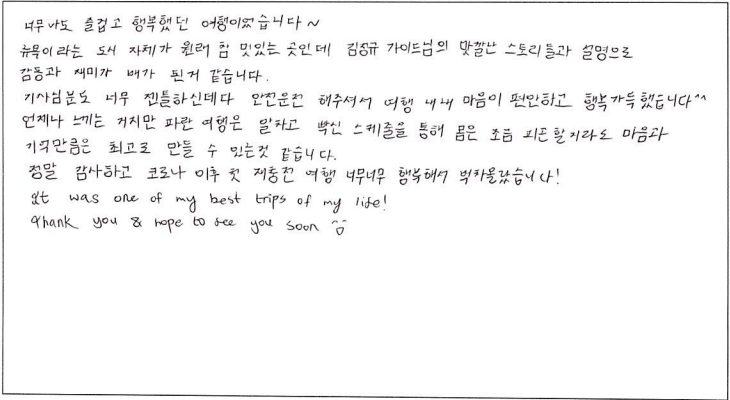 너무나도 즐겁고 행복했던 여행이었습니다~
뉴욕이라는 도시 자체가 원래 참 멋있는 곳인데 김정규 가이드님의 맛깔난 스토리들과 설명으로
감동과 재미가 배가 된거 같습니다.
기사님분도 너무 젠틀하신데다 안전운전 해주셔서 여행 내내 마음이 편안하고 행복가득했습니다^^
언제나 느끼는 거지만 파란 여행은 알차고 빡신 스케줄을 통해 몸은 조금 피곤할지라도 마음과
기억만큼은 최고로 만들 수 있는것 같습니다.
정말 감사하고 코로나 이후 첫 재충전 여행 너무너무 행복해서 벅차올랐습니다!
It was one of my best trips of my life!
Thank you & hope to see you soon ^^